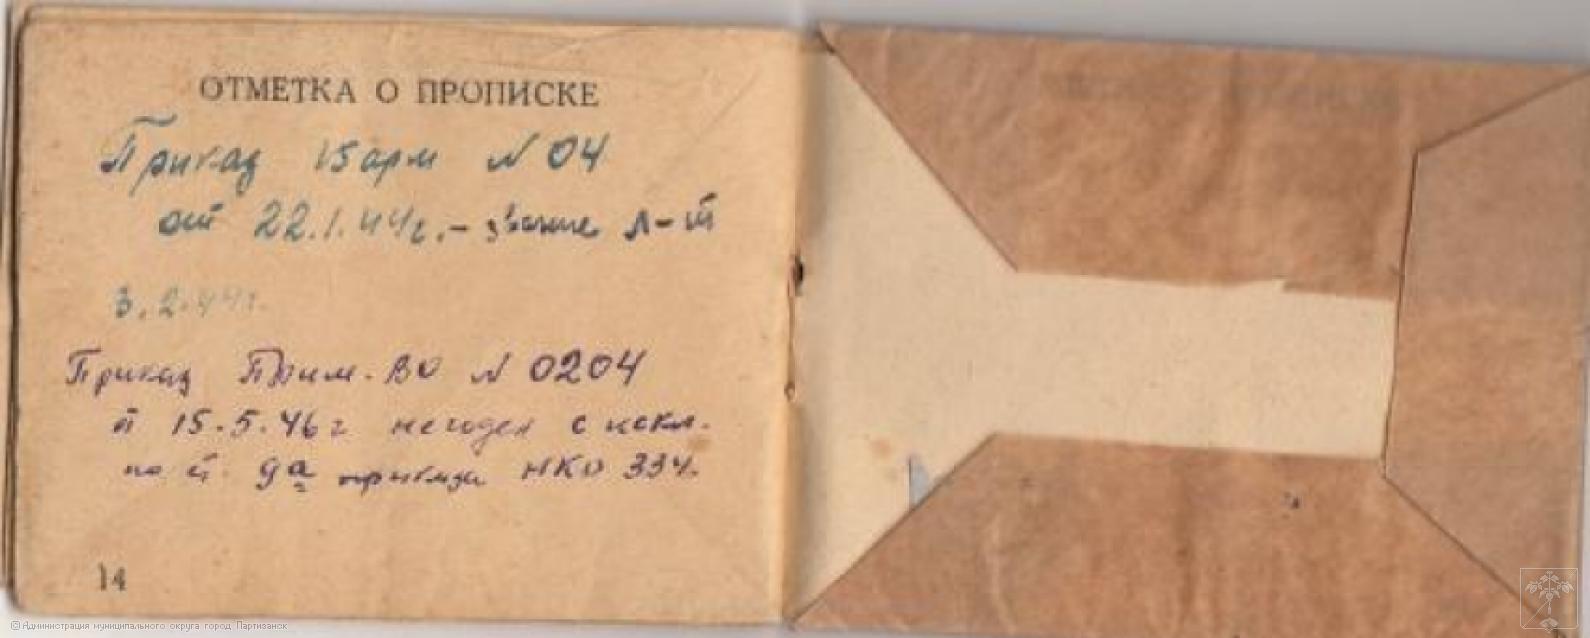 ОТМЕТКА О ПРОПИСКЕ
Приказ 15 арм N 04
от 22.1.44г. - звание л-т
3.2.44г.
Приказ Прим. ВО N 0204
т 15.5.46г негоден с искл.
по ст. 9а приказа НКО 334.
14
© Администрация муниципального округа город Партизанск